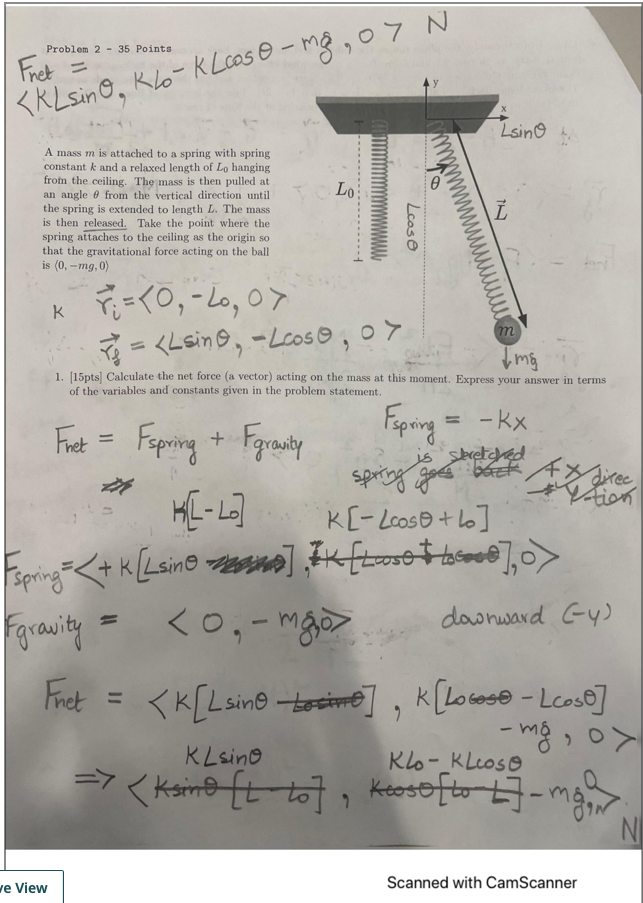 Problem 2 - 35 Points
Fnet =
<KLsinθ, KLo - KLcosθ - mg, 0> N
y
x
Lsinθ
A mass m is attached to a spring with spring
constant k and a relaxed length of L₀ hanging
from the ceiling. The mass is then pulled at
an angle θ from the vertical direction until
the spring is extended to length L. The mass
is then released. Take the point where the
spring attaches to the ceiling as the origin so
that the gravitational force acting on the ball
is ⟨0, −mg, 0⟩
L₀
θ
Lcosθ
L⃗
m
↓mg
K
r⃗i = <0, -Lo, 0>
r⃗f = <Lsinθ, -Lcosθ, 0>
1. [15pts] Calculate the net force (a vector) acting on the mass at this moment. Express your answer in terms
of the variables and constants given in the problem statement.
Fnet = Fspring + Fgravity
Fspring = -Kx
is stretched
spring goes back + x direc
Y-tion
K[L-Lo]
K[-Lcosθ+Lo]
Fspring = <+K[Lsinθ], K[Lcosθ + Locosθ], 0>
Fgravity = <0, -mg, 0> downward (-y)
Fnet = <K[Lsinθ - Losinθ], K[Locosθ - Lcosθ]
- mg, 0>
KLsinθ KLo - KLcosθ
=> <Ksinθ[L - Lo], Kcosθ[Lo - L] - mg, 0>
N
Scanned with CamScanner
ve View